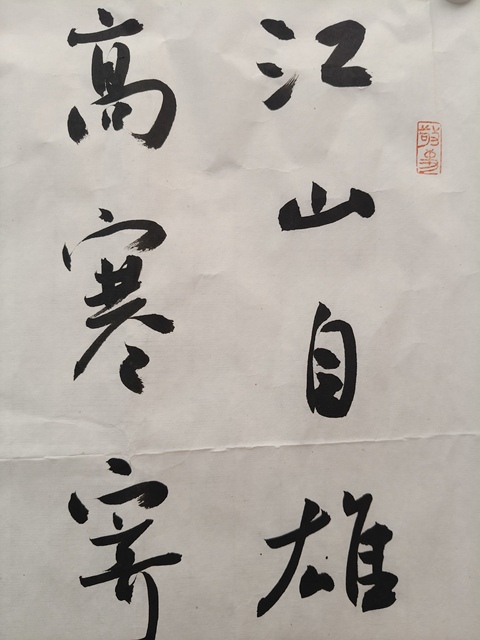 江山自雄
高寒寄